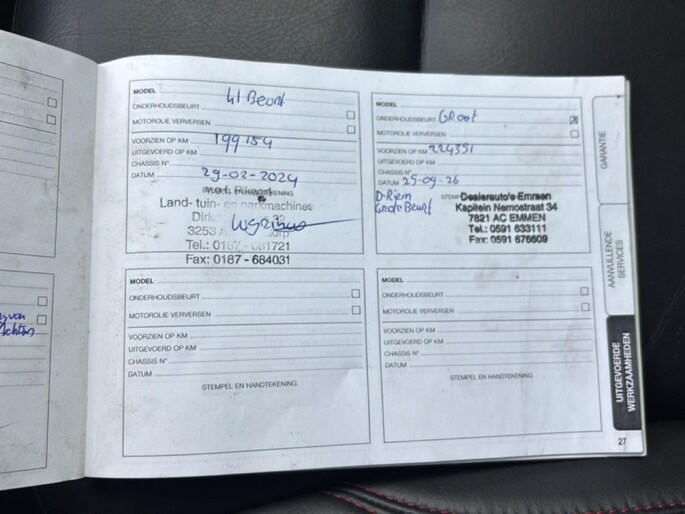 MODEL
Kl Beurt
ONDERHOUDSBEURT
MOTOROLIE VERVERSEN
VOORZIEN OP KM 199154
UITGEVOERD OP KM
CHASSIS N°
DATUM 29-02-2024
Land- tuin- en parkmachines
3253
Tel.: 0187 - 1721
Fax: 0187 - 684031
MODEL
ONDERHOUDSBEURT GROOT
MOTOROLIE VERVERSEN
VOORZIEN OP KM 224351
UITGEVOERD OP KM
CHASSIS N°
DATUM 25-09-26
D-Riem
Grote Beurt
Dealerauto's Emmen
Kapitein Nemostraat 34
7821 AC EMMEN
Tel.: 0591 633111
Fax: 0591 676609
MODEL
ONDERHOUDSBEURT
MOTOROLIE VERVERSEN
VOORZIEN OP KM
UITGEVOERD OP KM
CHASSIS N°
DATUM
STEMPEL EN HANDTEKENING
MODEL
ONDERHOUDSBEURT
MOTOROLIE VERVERSEN
VOORZIEN OP KM
UITGEVOERD OP KM
CHASSIS N°
DATUM
STEMPEL EN HANDTEKENING
GARANTIE
AANVULLENDE
SERVICES
UITGEVOERDE
WERKZAAMHEDEN
27